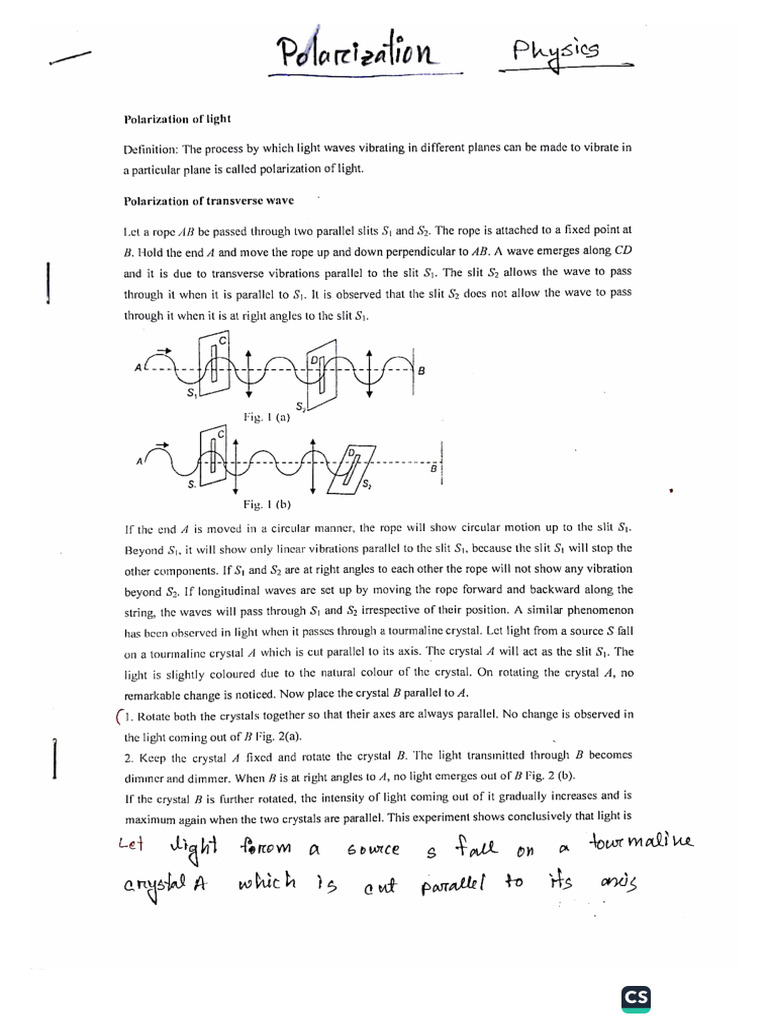 Polarcization Physics
Polarization of light
Definition: The process by which light waves vibrating in different planes can be made to vibrate in
a particular plane is called polarization of light.
Polarization of transverse wave
Let a rope AB be passed through two parallel slits S₁ and S₂. The rope is attached to a fixed point at
B. Hold the end A and move the rope up and down perpendicular to AB. A wave emerges along CD
and it is due to transverse vibrations parallel to the slit S₁. The slit S₂ allows the wave to pass
through it when it is parallel to S₁. It is observed that the slit S₂ does not allow the wave to pass
through it when it is at right angles to the slit S₁.
A S₁ C S₂ D B
Fig. 1 (a)
A S. C D S₂ B
Fig. 1 (b)
If the end A is moved in a circular manner, the rope will show circular motion up to the slit S₁.
Beyond S₁, it will show only linear vibrations parallel to the slit S₁, because the slit S₁ will stop the
other components. If S₁ and S₂ are at right angles to each other the rope will not show any vibration
beyond S₂. If longitudinal waves are set up by moving the rope forward and backward along the
string, the waves will pass through S₁ and S₂ irrespective of their position. A similar phenomenon
has been observed in light when it passes through a tourmaline crystal. Let light from a source S fall
on a tourmaline crystal A which is cut parallel to its axis. The crystal A will act as the slit S₁. The
light is slightly coloured due to the natural colour of the crystal. On rotating the crystal A, no
remarkable change is noticed. Now place the crystal B parallel to A.
(1. Rotate both the crystals together so that their axes are always parallel. No change is observed in
the light coming out of B Fig. 2(a).
2. Keep the crystal A fixed and rotate the crystal B. The light transmitted through B becomes
dimmer and dimmer. When B is at right angles to A, no light emerges out of B Fig. 2 (b).
If the crystal B is further rotated, the intensity of light coming out of it gradually increases and is
maximum again when the two crystals are parallel. This experiment shows conclusively that light is
Let light forom a source s fall on a tourmaline
crystal A which is cut parallel to its axis
CS